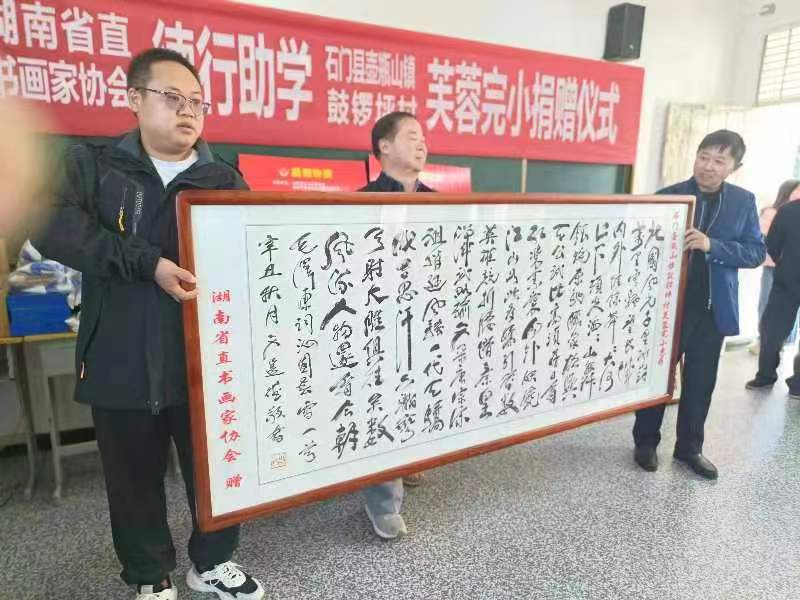 湖南省直
书画家协会
行助学
石门县壶瓶山镇
鼓锣坪村
芙蓉完小捐赠仪式
石门县壶瓶山镇鼓锣坪村芙蓉完小
北国风光千里冰封
万里雪飘望长城
内外惟余莽莽大河
上下顿失滔滔山舞
银蛇原驰蜡象欲与
天公试比高须晴日看
红装素裹分外妖娆
江山如此多娇引无数
英雄竞折腰惜秦皇
汉武略输文采唐宗宋
祖稍逊风骚一代天骄
成吉思汗只识弯
弓射大雕俱往矣数
风流人物还看今朝
毛泽东词沁园春雪一首
辛丑秋月敬书
湖南省直书画家协会 赠